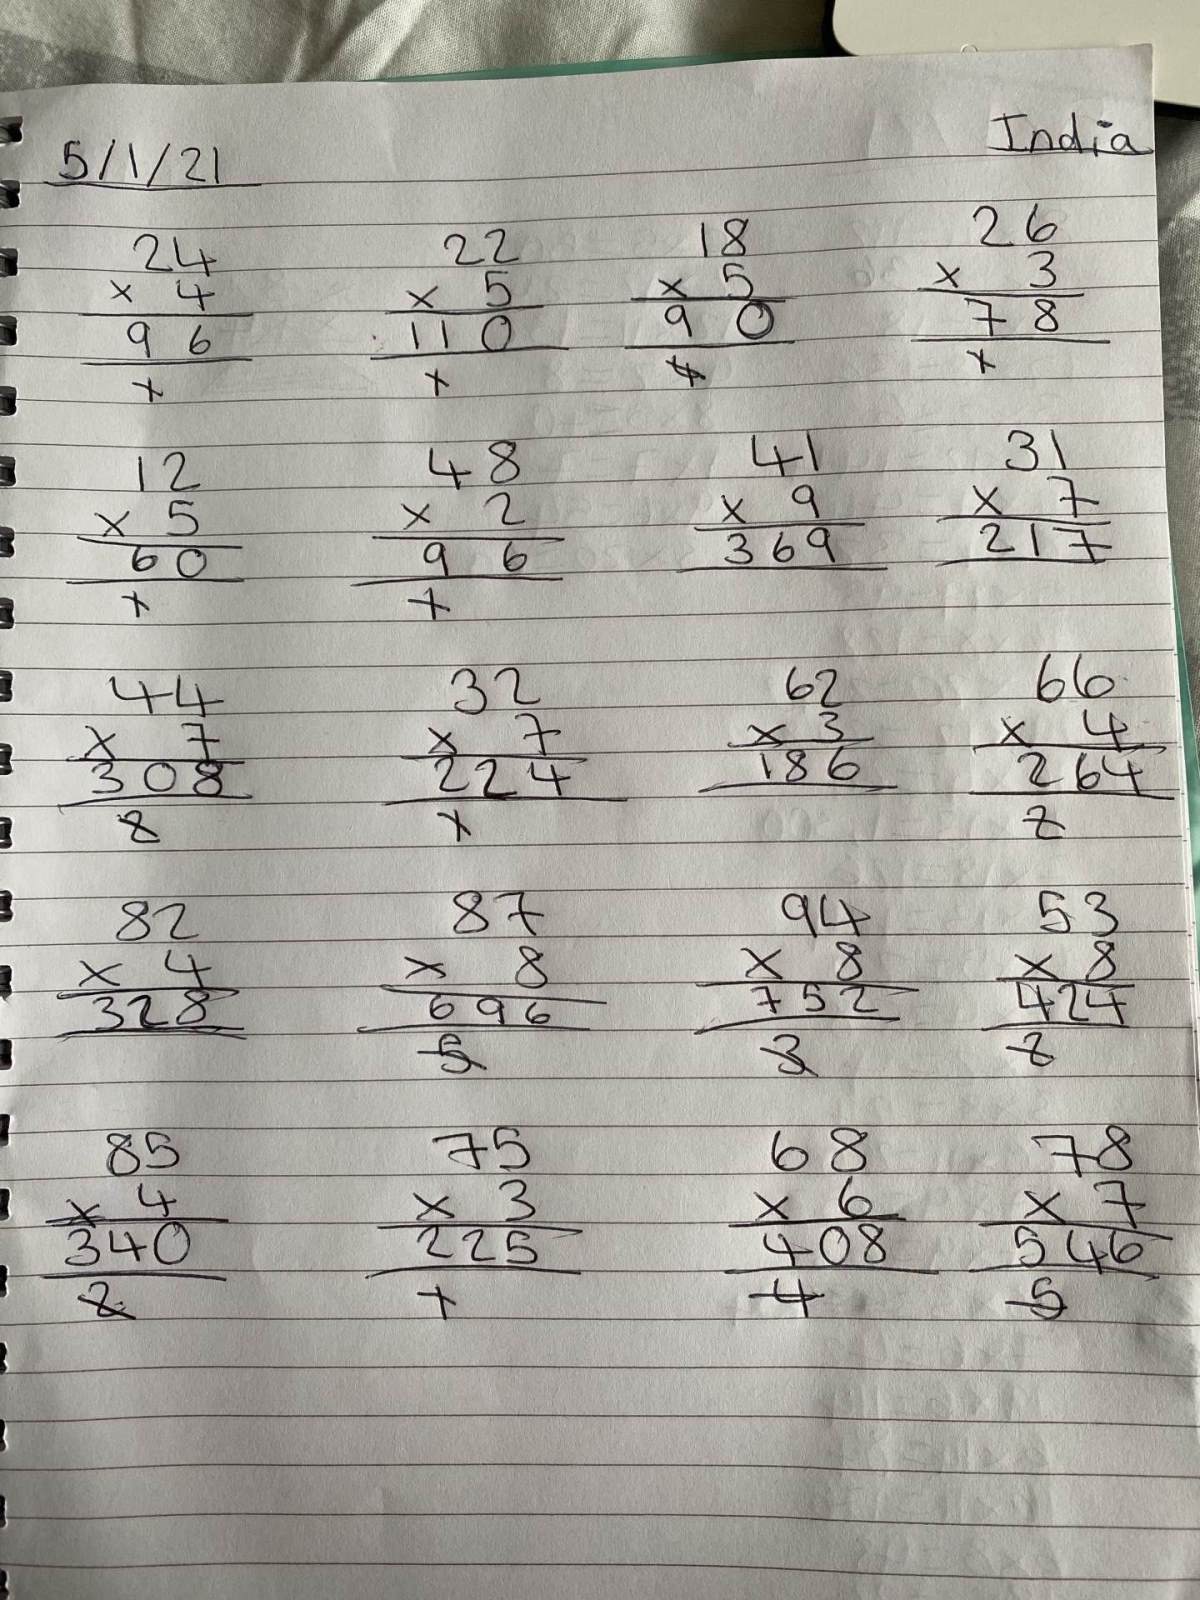 5/1/21 India
24 22 18 26
x 4 x 5 x 5 x 3
96 110 90 78
1 1 4 1
12 48 41 31
x 5 x 2 x 9 x 7
60 96 369 217
1 1
44 32 62 66
x 7 x 7 x 3 x 4
308 224 186 264
2 1 2
82 87 94 53
x 4 x 8 x 8 x 8
328 696 752 424
5 3 2
85 75 68 78
x 4 x 3 x 6 x 7
340 225 408 546
2 1 4 5